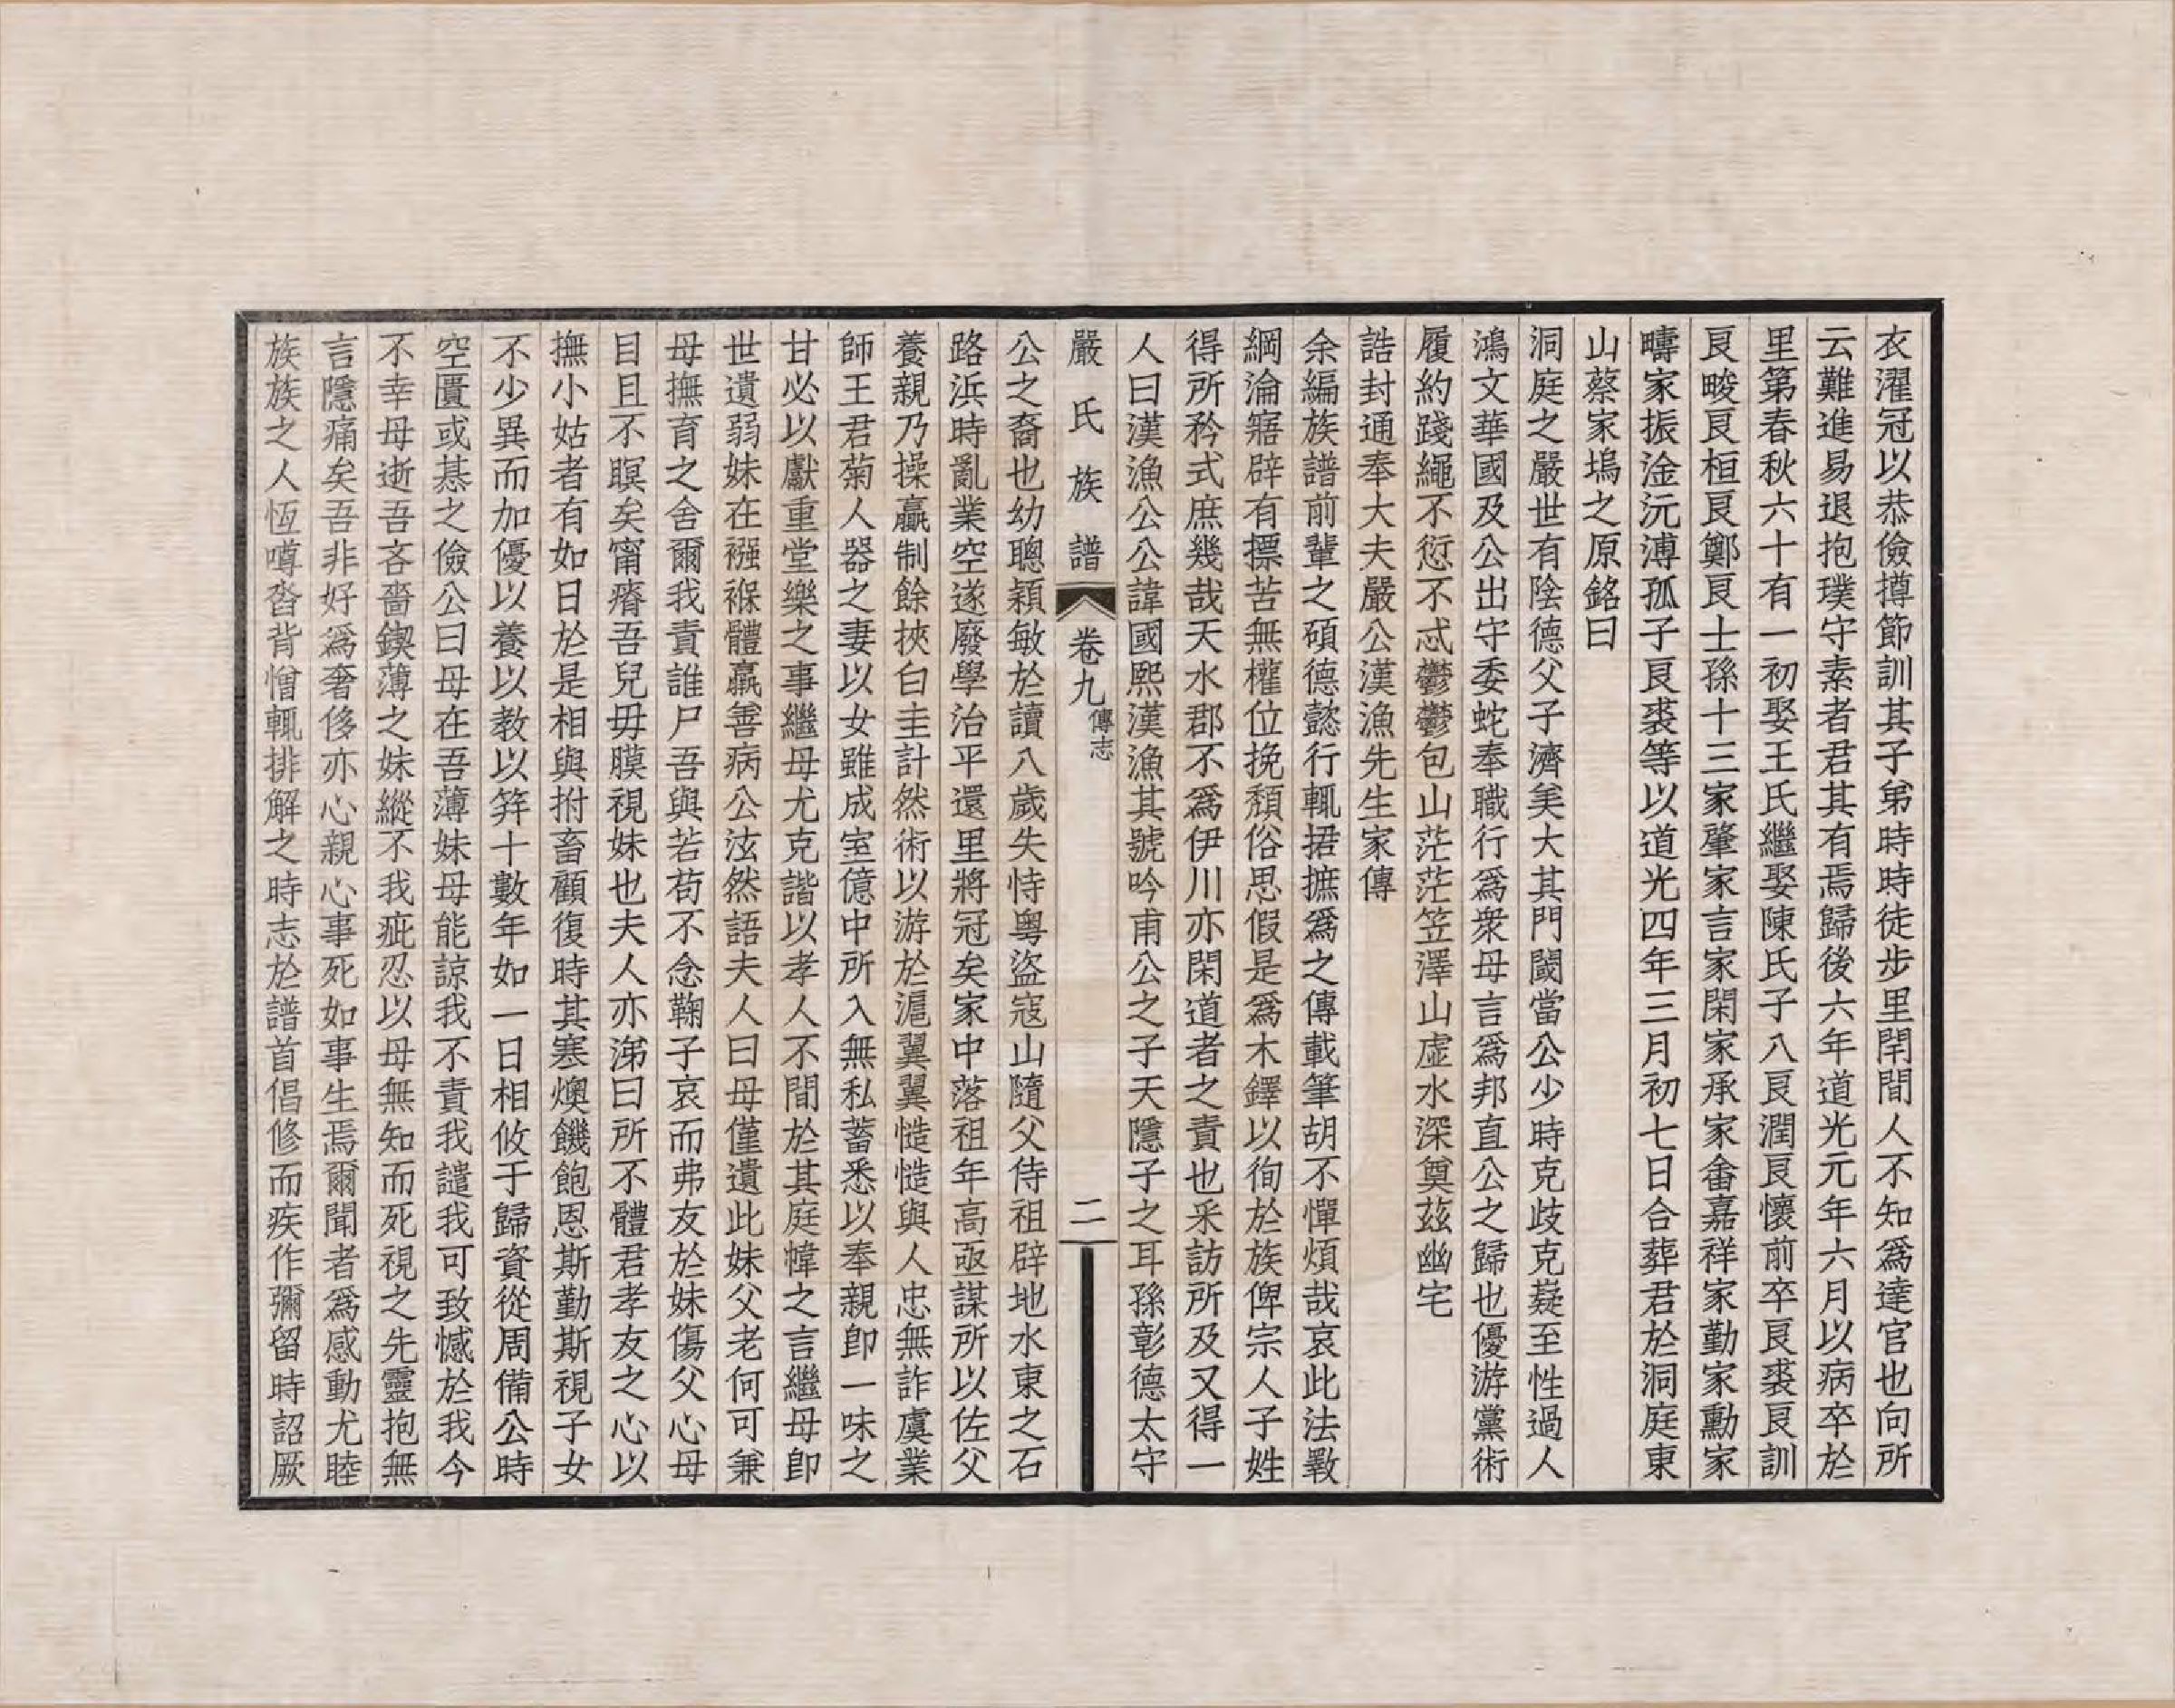 衣濯冠以恭儉撙節訓其子弟時時徒步里閈間人不知爲達官也向所
云難進易退抱璞守素者君其有焉歸後六年道光元年六月以病卒於
里第春秋六十有一初娶王氏繼娶陳氏子八良潤良懷前卒良裘良訓
良畯良桓良鄭良士孫十三家肇家言家閑家承家畬嘉祥家勤家勳家
疇家振淦沅溥孤子良裘等以道光四年三月初七日合葬君於洞庭東
山蔡家塢之原銘曰
洞庭之嚴世有陰德父子濟美大其門閾當公少時克歧克嶷至性過人
鴻文華國及公出守委蛇奉職行爲衆母言爲邦直公之歸也優游黨術
履約踐繩不愆不忒鬱鬱包山茫茫笠澤山虛水深奠茲幽宅
誥封通奉大夫嚴公漢漁先生家傳
余編族譜前輩之碩德懿行輒捃摭爲之傳載筆胡不憚煩哉哀此法斁
綱淪寤辟有摽苦無權位挽頹俗思假是爲木鐸以徇於族俾宗人子姓
得所矜式庶幾哉天水郡不爲伊川亦閑道者之責也釆訪所及又得一
人曰漢漁公公諱國熙漢漁其號吟甫公之子天隱子之耳孫彰德太守
嚴氏族譜 卷九 傳志 二
公之裔也幼聰穎敏於讀八歲失恃粵盜寇山隨父侍祖辟地水東之石
路浜時亂業空遂廢學治平還里將冠矣家中落祖年高亟謀所以佐父
養親乃操贏制餘挾白圭計然術以游於滬翼翼慥慥與人忠無詐虞業
師王君菊人器之妻以女雖成室億中所入無私蓄悉以奉親卽一味之
甘必以獻重堂樂之事繼母尤克諧以孝人不間於其庭幃之言繼母卽
世遺弱妹在襁褓體羸善病公泫然語夫人曰母僅遺此妹父老何可兼
母撫育之舍爾我責誰尸吾與若苟不念鞠子哀而弗友於妹傷父心母
目且不瞑矣甯瘠吾兒毋膜視妹也夫人亦涕曰所不體君孝友之心以
撫小姑者有如日於是相與拊畜顧復時其寒燠饑飽恩斯勤斯視子女
不少異而加優以養以教以笄十數年如一日相攸于歸資從周備公時
空匱或惎之儉公曰母在吾薄妹母能諒我不責我譴我可致憾於我今
不幸母逝吾吝嗇鍥薄之妹縱不我疵忍以母無知而死視之先靈抱無
言隱痛矣吾非好爲奢侈亦心親心事死如事生焉爾聞者爲感動尤睦
族族之人恆噂沓背憎輒排解之時志於譜首倡修而疾作彌留時詔厥